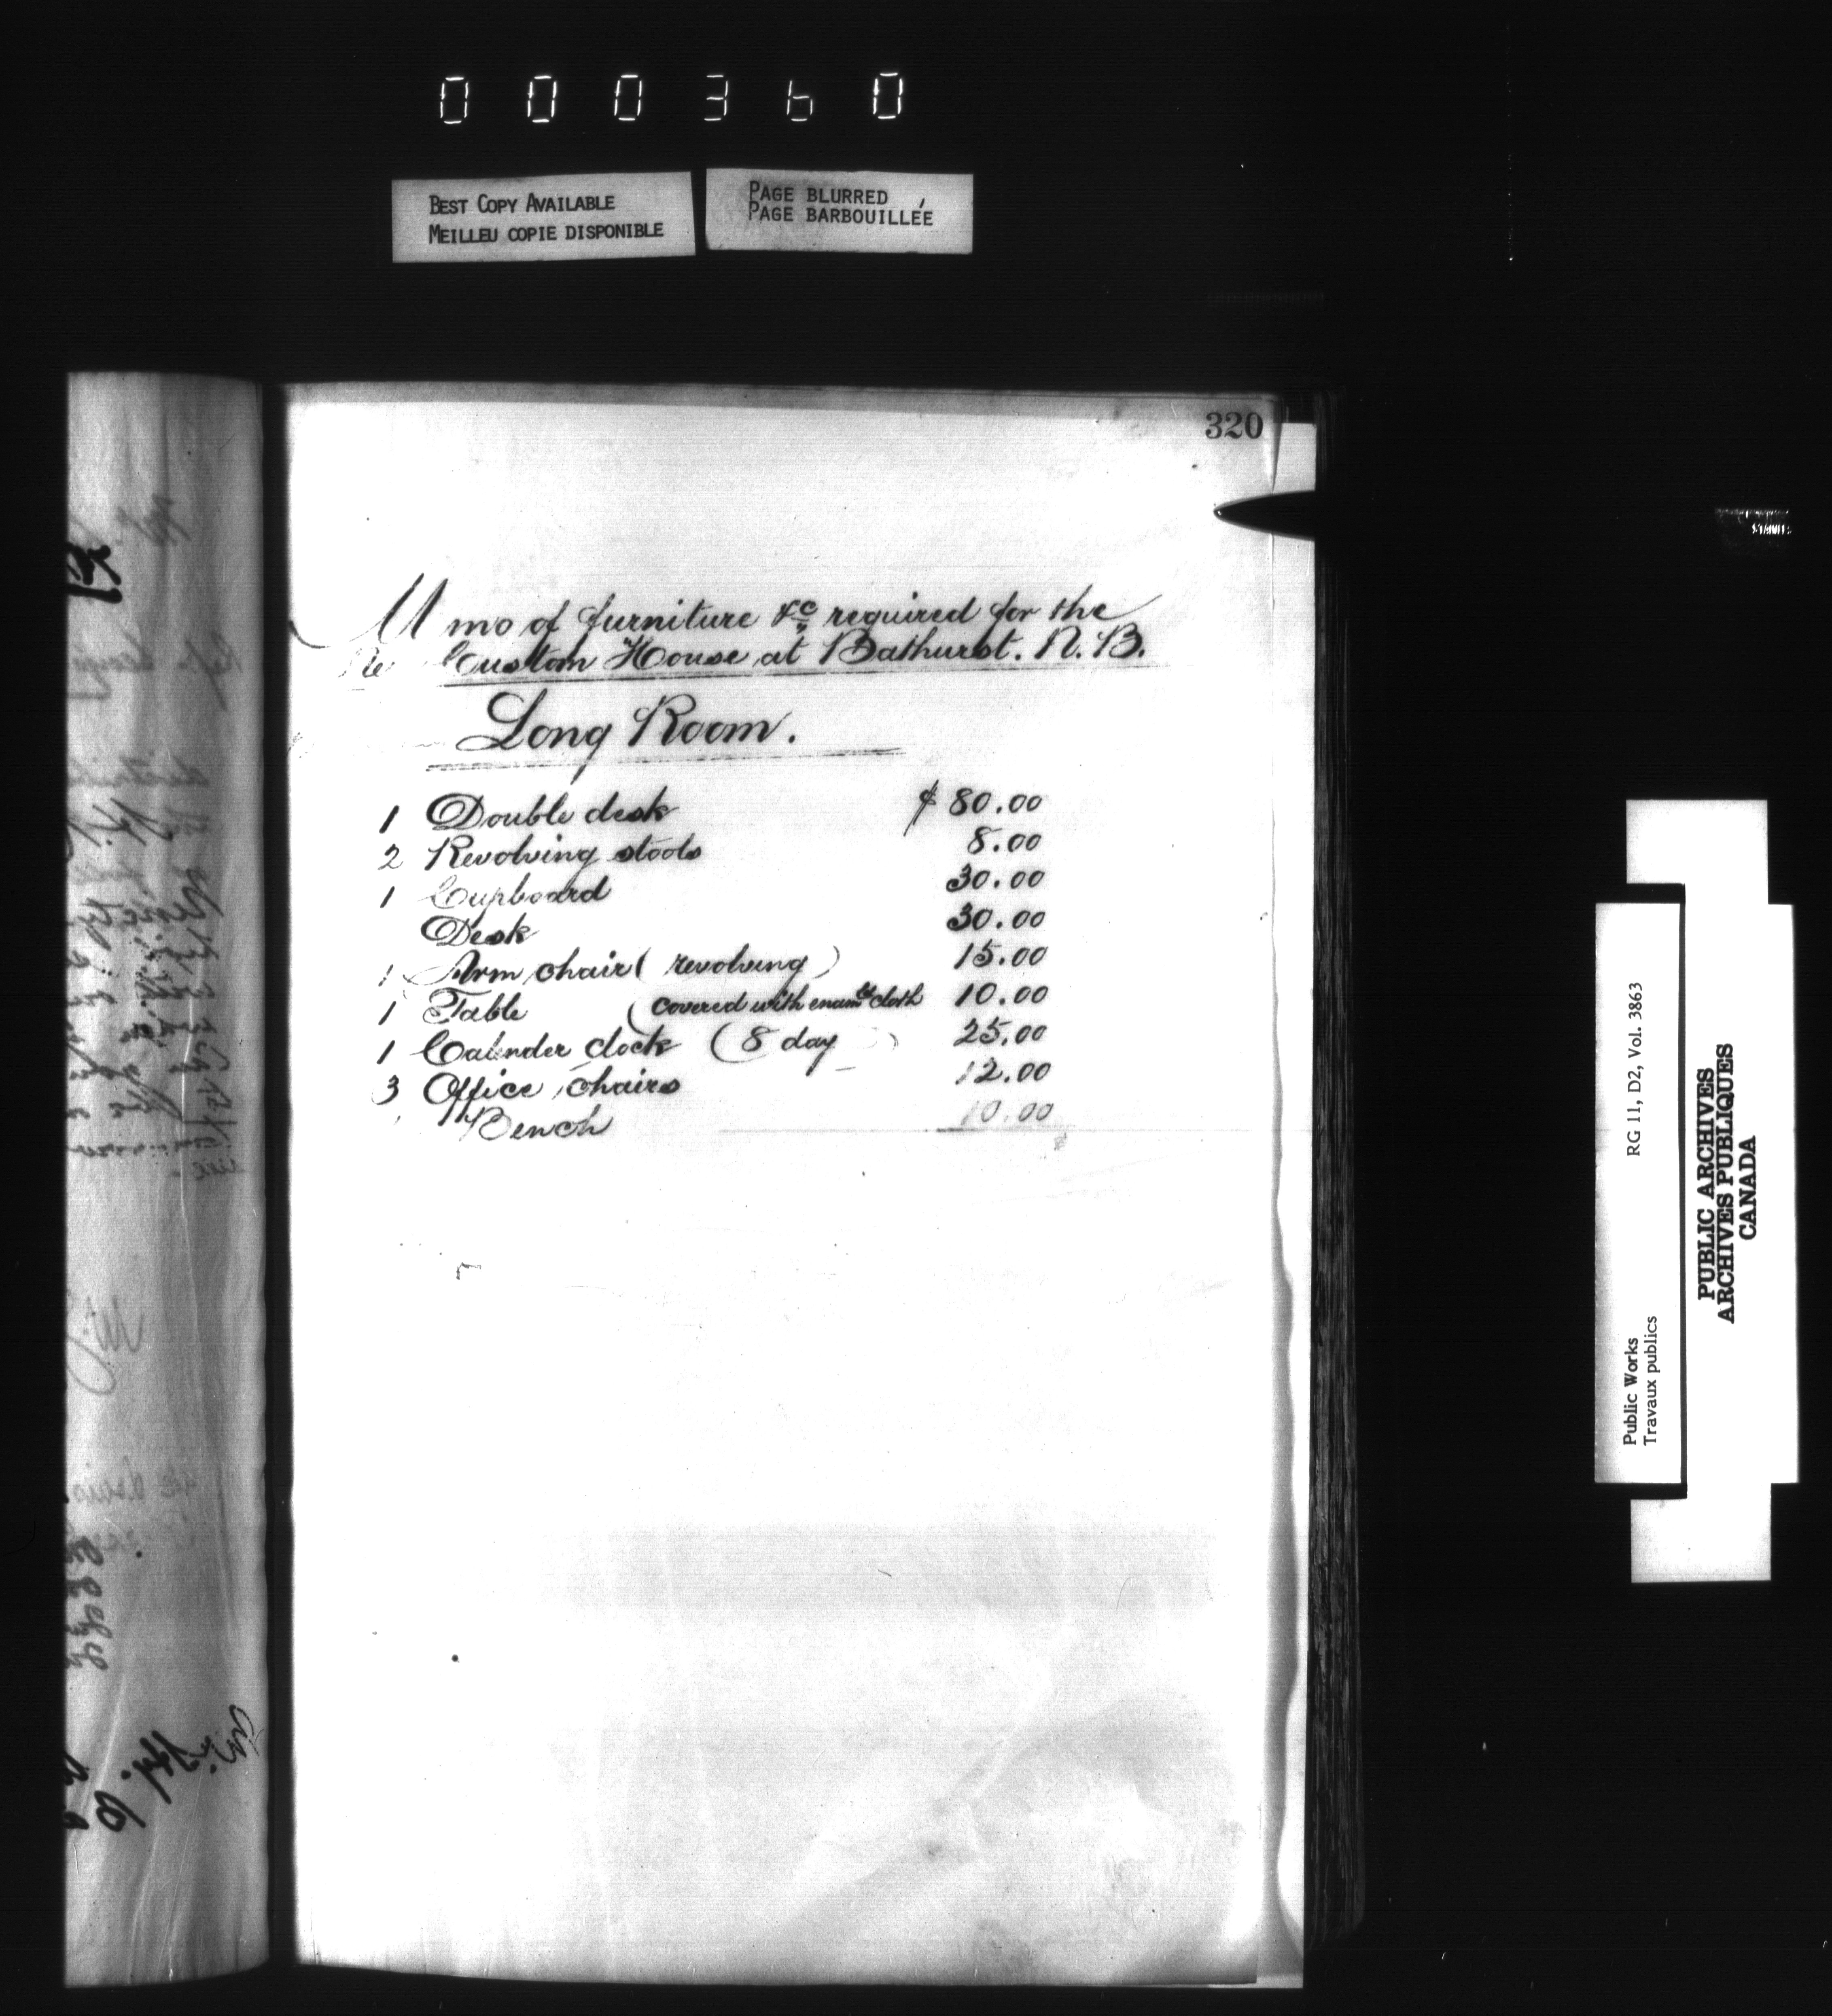 000360
BEST COPY AVAILABLE
MEILLEU COPIE DISPONIBLE
PAGE BLURRED
PAGE BARBOUILLÉE
320
M mo of furniture &c required for the
Custom House at Bathurst. N. B.
Long Room.
1 Double desk $ 80.00
2 Revolving stools 8.00
1 Cupboard 30.00
Desk 30.00
1 Arm chair ( revolving ) 15.00
1 Table ( covered with enamld cloth 10.00
1 Calender clock ( 8 day ) 25.00
3 Office chairs 12.00
Bench 10.00
Public Works
Travaux publics
RG 11, D2, Vol. 3863
PUBLIC ARCHIVES
ARCHIVES PUBLIQUES
CANADA